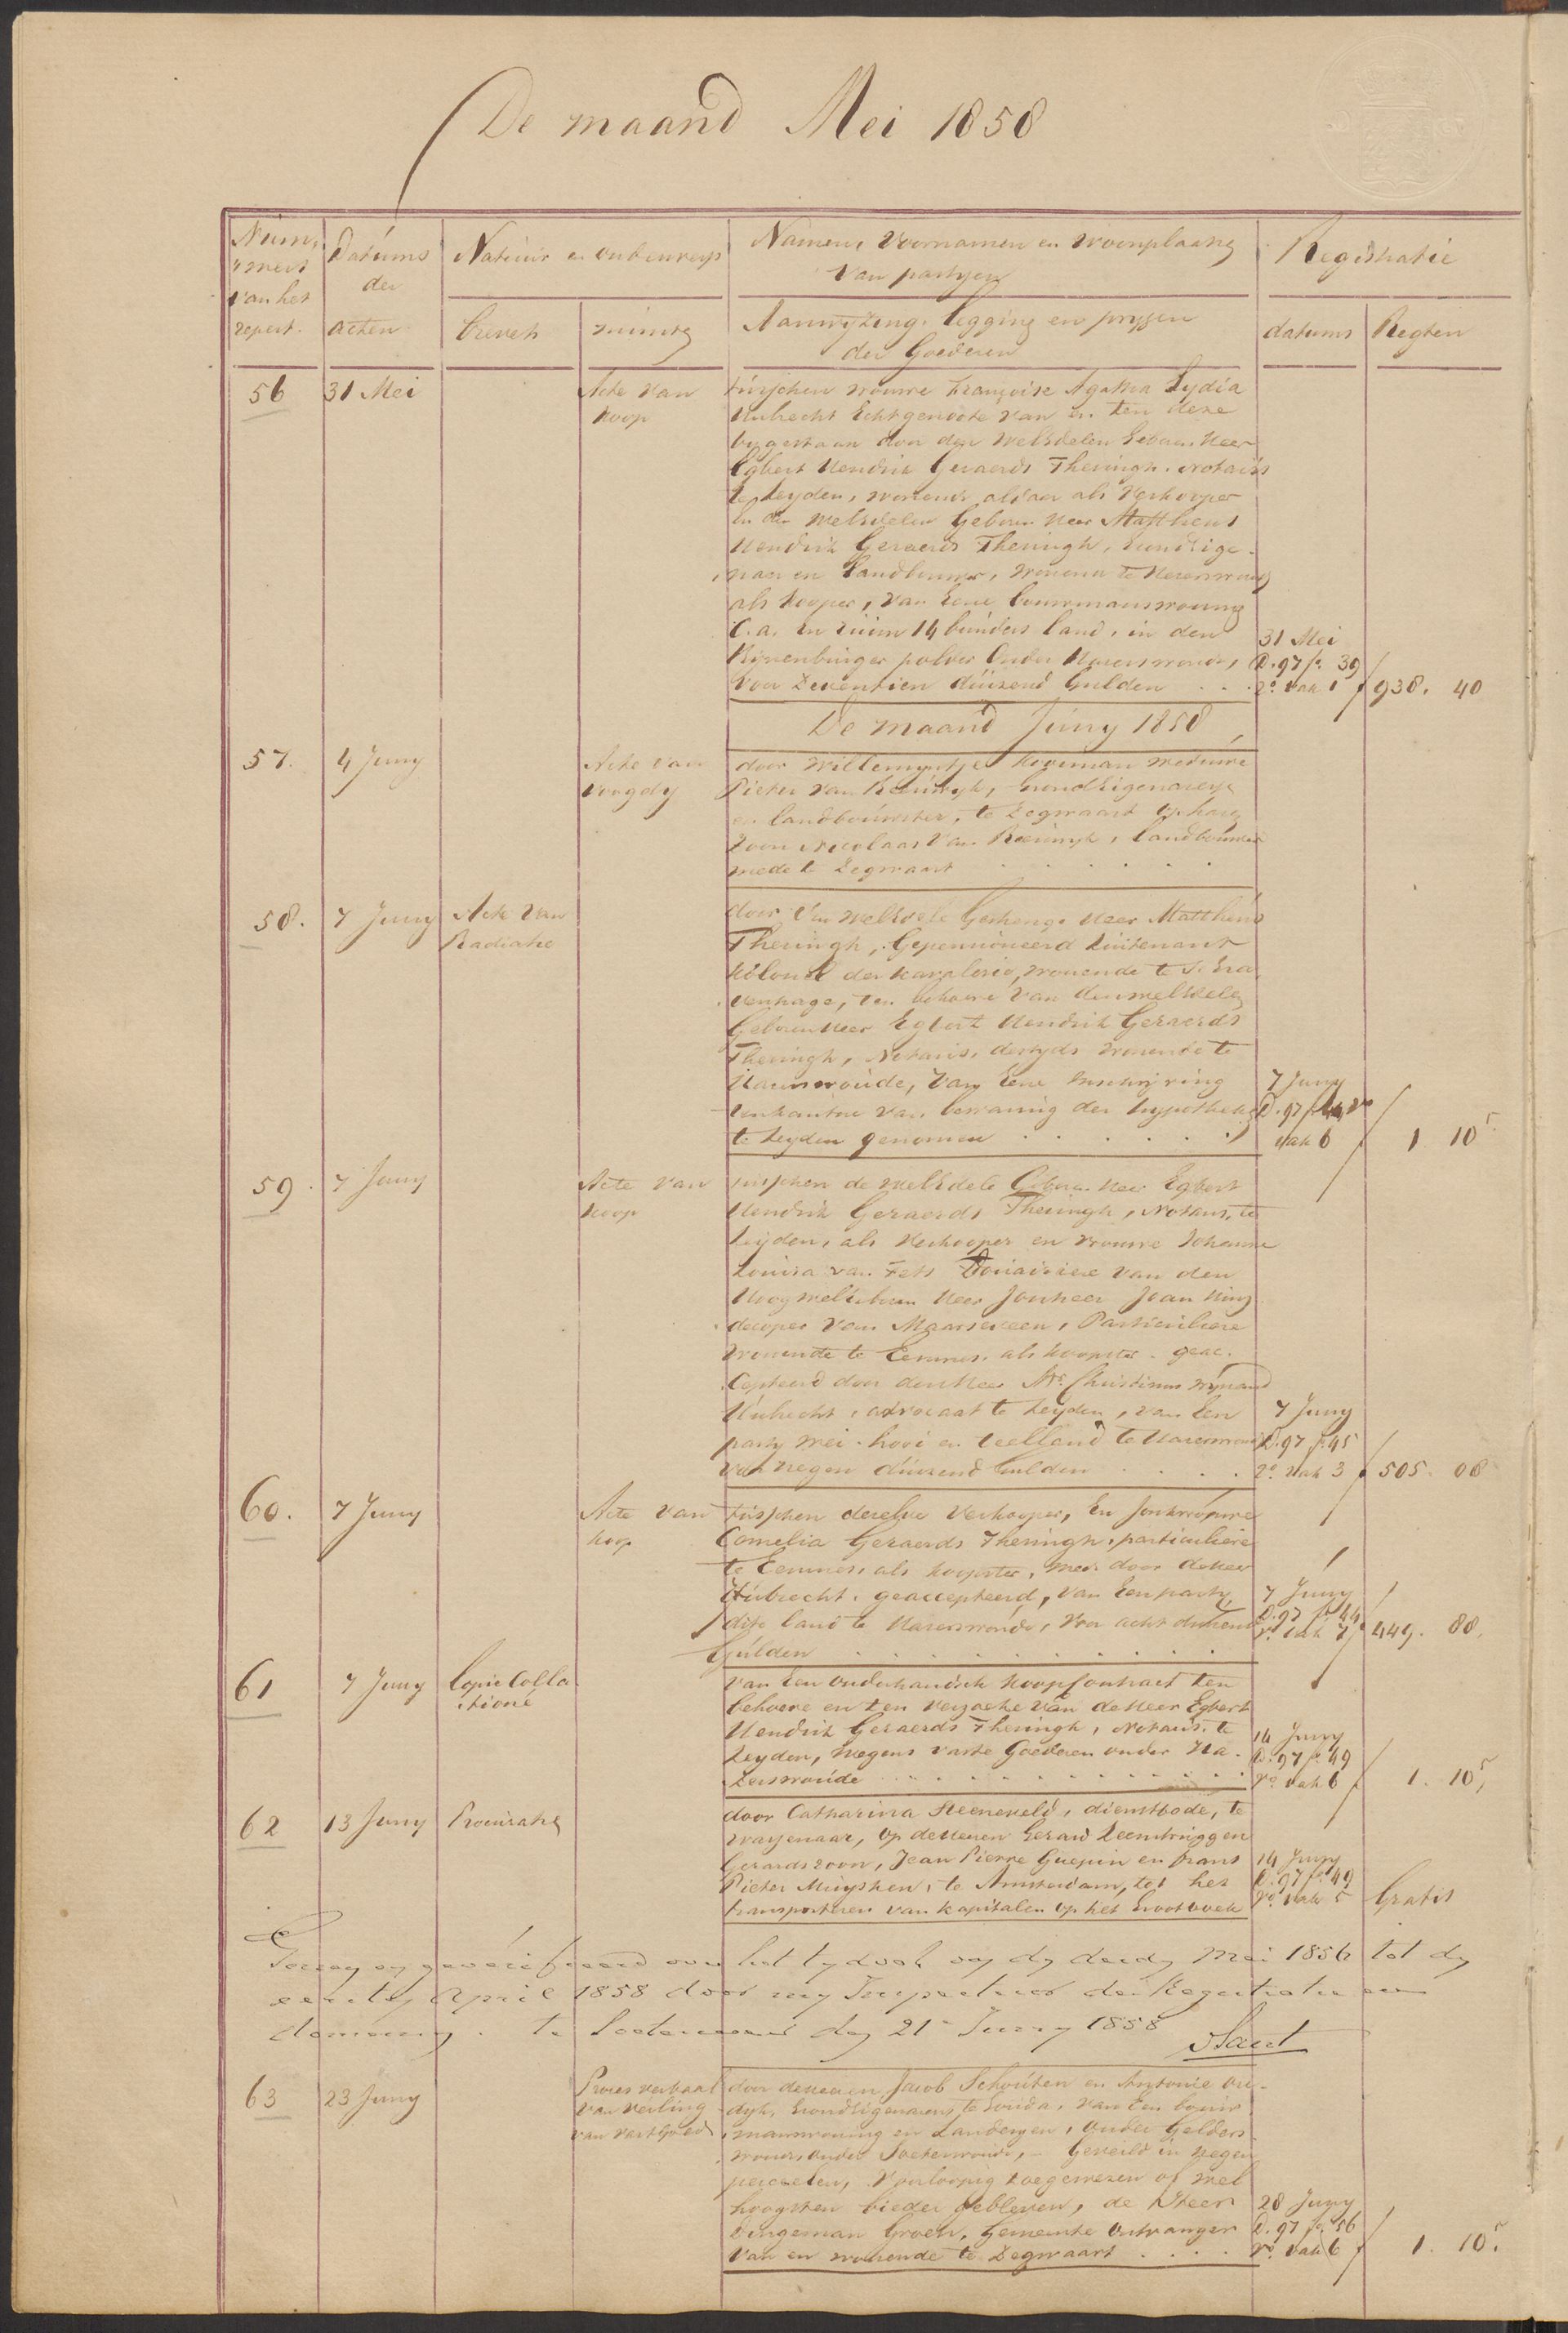 De maand Mei 1858
Num,
mers
van het
repert.
Datums
der
acten
Natuur en
brevets
minute
Namen, Voornamen en woonplaats
van partijen
Aanwyzing, legging en pryzen
der Goederen
Registratie
datums
Regten
56
31 Mei
Acte van
Koop
tusschen vrouwe Françoise Agatha Lydia
Hubrecht Echtgenoote van en ten deze
bygestaan door den WelEdelen Geboren Heer
Egbert Hendrik Geraerds Theringh, Notaris
te Leyden, wonende aldaar als Verkooper
en den WelEdelen Geboren Heer Mattheus
Hendrik Geraerds Theringh, Grondeige-
naar en landbouwer, wonende te Hazerswoude
als kooper, van Eene bouwmanswoning
C.a. en ruim 14 bunders land, in den
Rynenburger polder onder Hazerswoude,
voor zeventien duizend Gulden . . .
31 Mei
D. 97 fo. 39
ro. vak 1
938. 40
De maand Juny 1858
57.
4 Juny
Acte van
Voogdy
door Willemyntje Koreman weduwe
Pieter van Reeuwyk, Grondeigenaresse
en landbouwster, te Zegwaart op haar
Zoon Nicolaas van Reeuwyk, landbouwer
mede te Zegwaart . . . . . .
58.
7 Juny
Acte van
Radiatie
door den WelEdele Gestrenge Heer Mattheus
Theringh, Gepensioneerd Luitenant
Kolonel der kavalerie, wonende te s. Gra-
venhage, ten behoeve van den WelEdelen
Geboren Heer Egbert Hendrik Geraerds
Theringh, Notaris, destyds wonende te
Hazerswoude, van Eene inschryving
ten kantore van bewaring der hypotheken
te Leyden genomen . . . . . .
7 Juny
D. 97 fo. 44 vo
vak 6
1 10⁵
59.
7 Juny
Acte van
koop
tusschen de WelEdele Geboren Heer Egbert
Hendrik Geraerds Theringh, Notaris, te
Leyden, als Verkooper en Vrouwe Johanna
Louisa van Fets Douairiere van den
HoogWelGeboren Heer Jonkheer Joan Huy
decoper van Maarseveen, Particuliere
wonende te Eemnes, als koopster, geac-
cepteerd door den Heer Mr. Christinus Wynand
Hubrecht, advocaat te Leyden, van Een
party wei- hooi en teelland te Hazerswoude
voor negen duizend Gulden . . . .
7 Juny
D. 97 fo. 45
ro. vak 3
505. 08
60.
7 Juny
Acte van
koop
tusschen dezelve Verkooper, En Jonkvrouwe
Cornelia Geraerds Theringh, particuliere
te Eemnes, als koopster, mede door de Heer
Hubrecht, geaccepteerd, van Een party
dito land te Hazerswoude, voor acht duizend
Gulden . . . . . . . . . .
7 Juny
D. 97 fo. 44
vo. vak 7
449. 88.
61
7 Juny
Copie Colla
tione
van Een onderhandsch koopcontract ten
behoeve en ten verzoeke van de Heer Egbert
Hendrik Geraerds Theringh, Notaris, te
Leyden, wegens vaste Goederen onder Ha-
zerswoude . . . . . . . . . . .
14 Juny
D. 97 fo. 49
ro. vak 6
1. 10⁵
62
13 Juny
Procuratie
door Catharina Steeneveld, dienstbode, te
Wassenaar, op de Heeren Gerard Leembruggen
Gerardszoon, Jean Pierre Guepin en Frans
Pieter Muysken, te Amsterdam, tot het
transporteren van kapitalen op het Grootboek
14 Juny
D. 97 fo. 49
ro. vak 5
Gratis
Gezien en geverifieerd over het tydvak van den derden Mei 1856 tot den
eersten April 1858 door my Inspecteur der Registratie en
domeinen. te Soeterwoude den 21 Juny 1858
63
23 Juny
Proces verbaal
van Veiling
van vastgoed
door de Heeren Jacob Schouten en Antonie Ou-
dyk, Grondeigenaren, te Gouda, van Een bouw-
manswoning en Landeryen, onder Gelders-
woude, onder Soeterwoude, - Geveild in negen
perceelen, Voorloopig toegewezen of wel
hoogsten bieder gebleven, de Heer
Dingeman Groen, Gemeente Ontvanger
van en wonende te Zegwaart . . . .
28 Juny
D. 97 fo. 56
vo. vak 6
1. 10⁵.